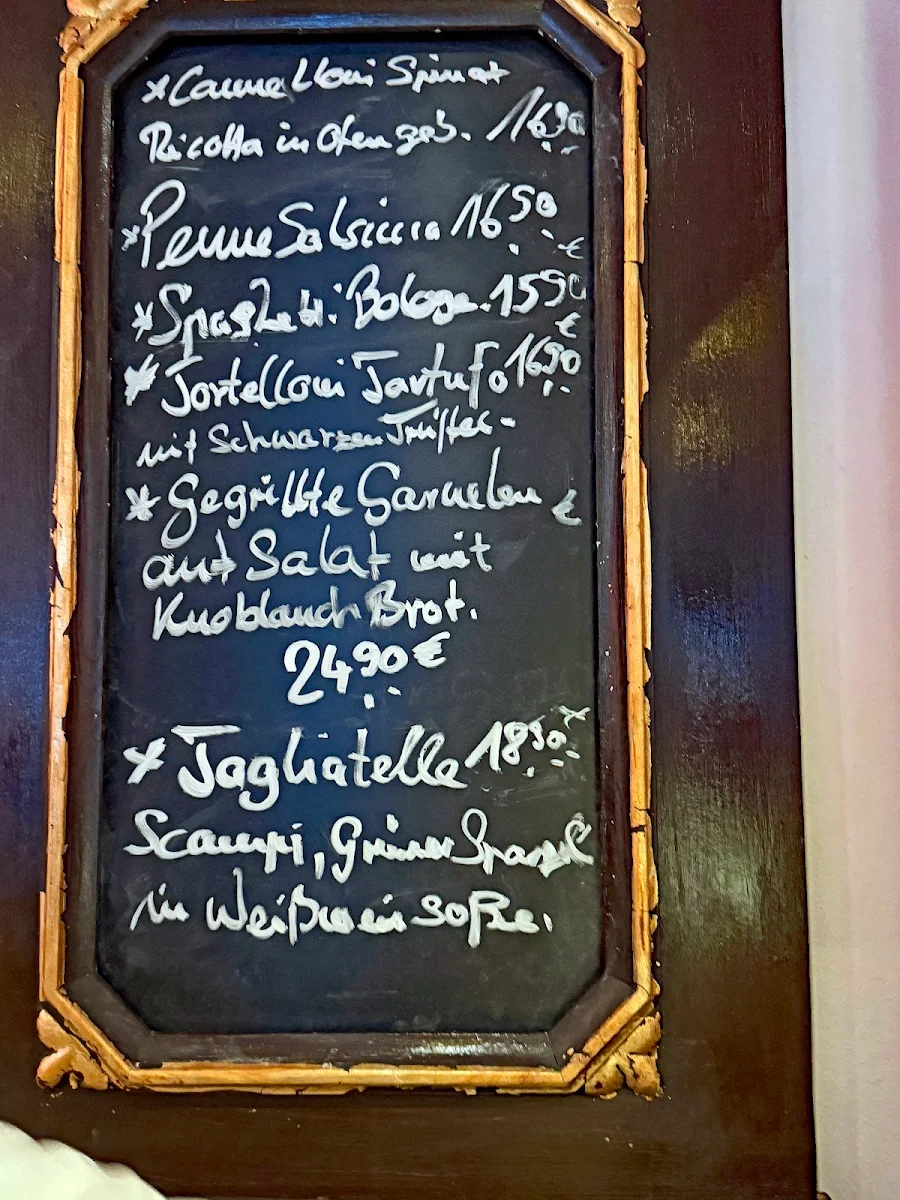 *Cannelloni Spinat
Ricotta in Ofen geb. 16,90
*Penne Salsiccia 16,90 €
*Spaghetti Bologn. 15,90 €
*Tortelloni Tartufo 16,90
mit Schwarzen Trüffel- €
*Gegrillte Garnelen
auf Salat mit
Knoblauch Brot.
24,90 €
*Tagliatelle 18,90
Scampi, Grüner Spargel
in Weißwein soße.